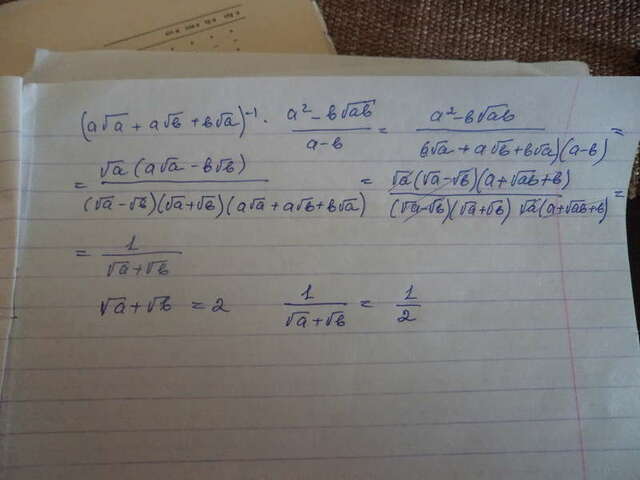 (a√a + a√b + b√a)⁻¹ · (a² - b√ab)/(a - b) = (a² - b√ab)/((a√a + a√b + b√a)(a - b)) =
= (√a (a√a - b√b))/((√a - √b)(√a + √b)(a√a + a√b + b√a)) = (√a (√a - √b)(a + √ab + b))/((√a - √b)(√a + √b) √a (a + √ab + b)) =
= 1/(√a + √b)
√a + √b = 2 1/(√a + √b) = 1/2